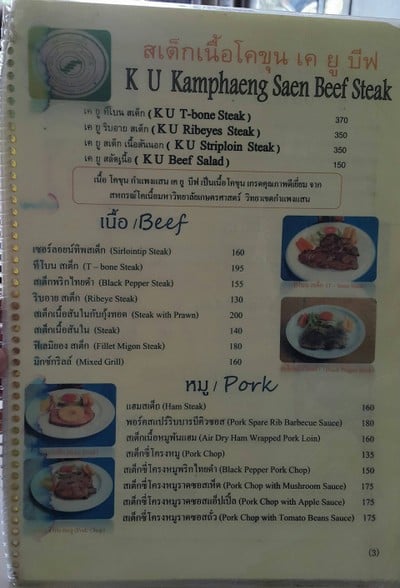 สเต็กเนื้อโคขุน เค ยู บีฟ
K U Kamphaeng Saen Beef Steak
เค ยู ทีโบน สเต็ก (K U T-bone Steak) 370
เค ยู ริบอาย สเต็ก (K U Ribeyes Steak) 350
เค ยู สเต็ก เนื้อสันนอก (K U Striploin Steak) 350
เค ยู สลัดเนื้อ (K U Beef Salad) 150
เนื้อ โคขุน กำแพงแสน เค ยู บีฟ เป็นเนื้อโคขุน เกรดคุณภาพดีเยี่ยม จาก
สหกรณ์โคเนื้อมหาวิทยาลัยเกษตรศาสตร์ วิทยาเขตกำแพงแสน
เนื้อ / Beef
เซอร์ลอยน์ทิพสเต็ก (Sirlointip Steak) 160
ทีโบน สเต็ก (T – bone Steak) 195
สเต็กพริกไทยดำ (Black Pepper Steak) 155
ริบอาย สเต็ก (Ribeye Steak) 130
สเต็กเนื้อสันในกับกุ้งทอด (Steak with Prawn) 200
สเต็กเนื้อสันใน (Steak) 140
ฟิเลมิยอง สเต็ก (Fillet Migon Steak) 180
มิกซ์กริลล์ (Mixed Grill) 160
หมู / Pork
แฮมสเต็ก (Ham Steak) 160
พอร์คสแปร์ริบบาร์บีคิวซอส (Pork Spare Rib Barbecue Sauce) 180
สเต็กเนื้อหมูพันแฮม (Air Dry Ham Wrapped Pork Loin) 160
สเต็กซี่โครงหมู (Pork Chop) 135
สเต็กซี่โครงหมูพริกไทยดำ (Black Pepper Pork Chop) 150
สเต็กซี่โครงหมูราดซอสเห็ด (Pork Chop with Mushroom Sauce) 175
สเต็กซี่โครงหมูราดซอสแอ๊ปเปิ้ล (Pork Chop with Apple Sauce) 175
สเต็กซี่โครงหมูราดซอสถั่ว (Pork Chop with Tomato Beans Sauce) 175
(3)